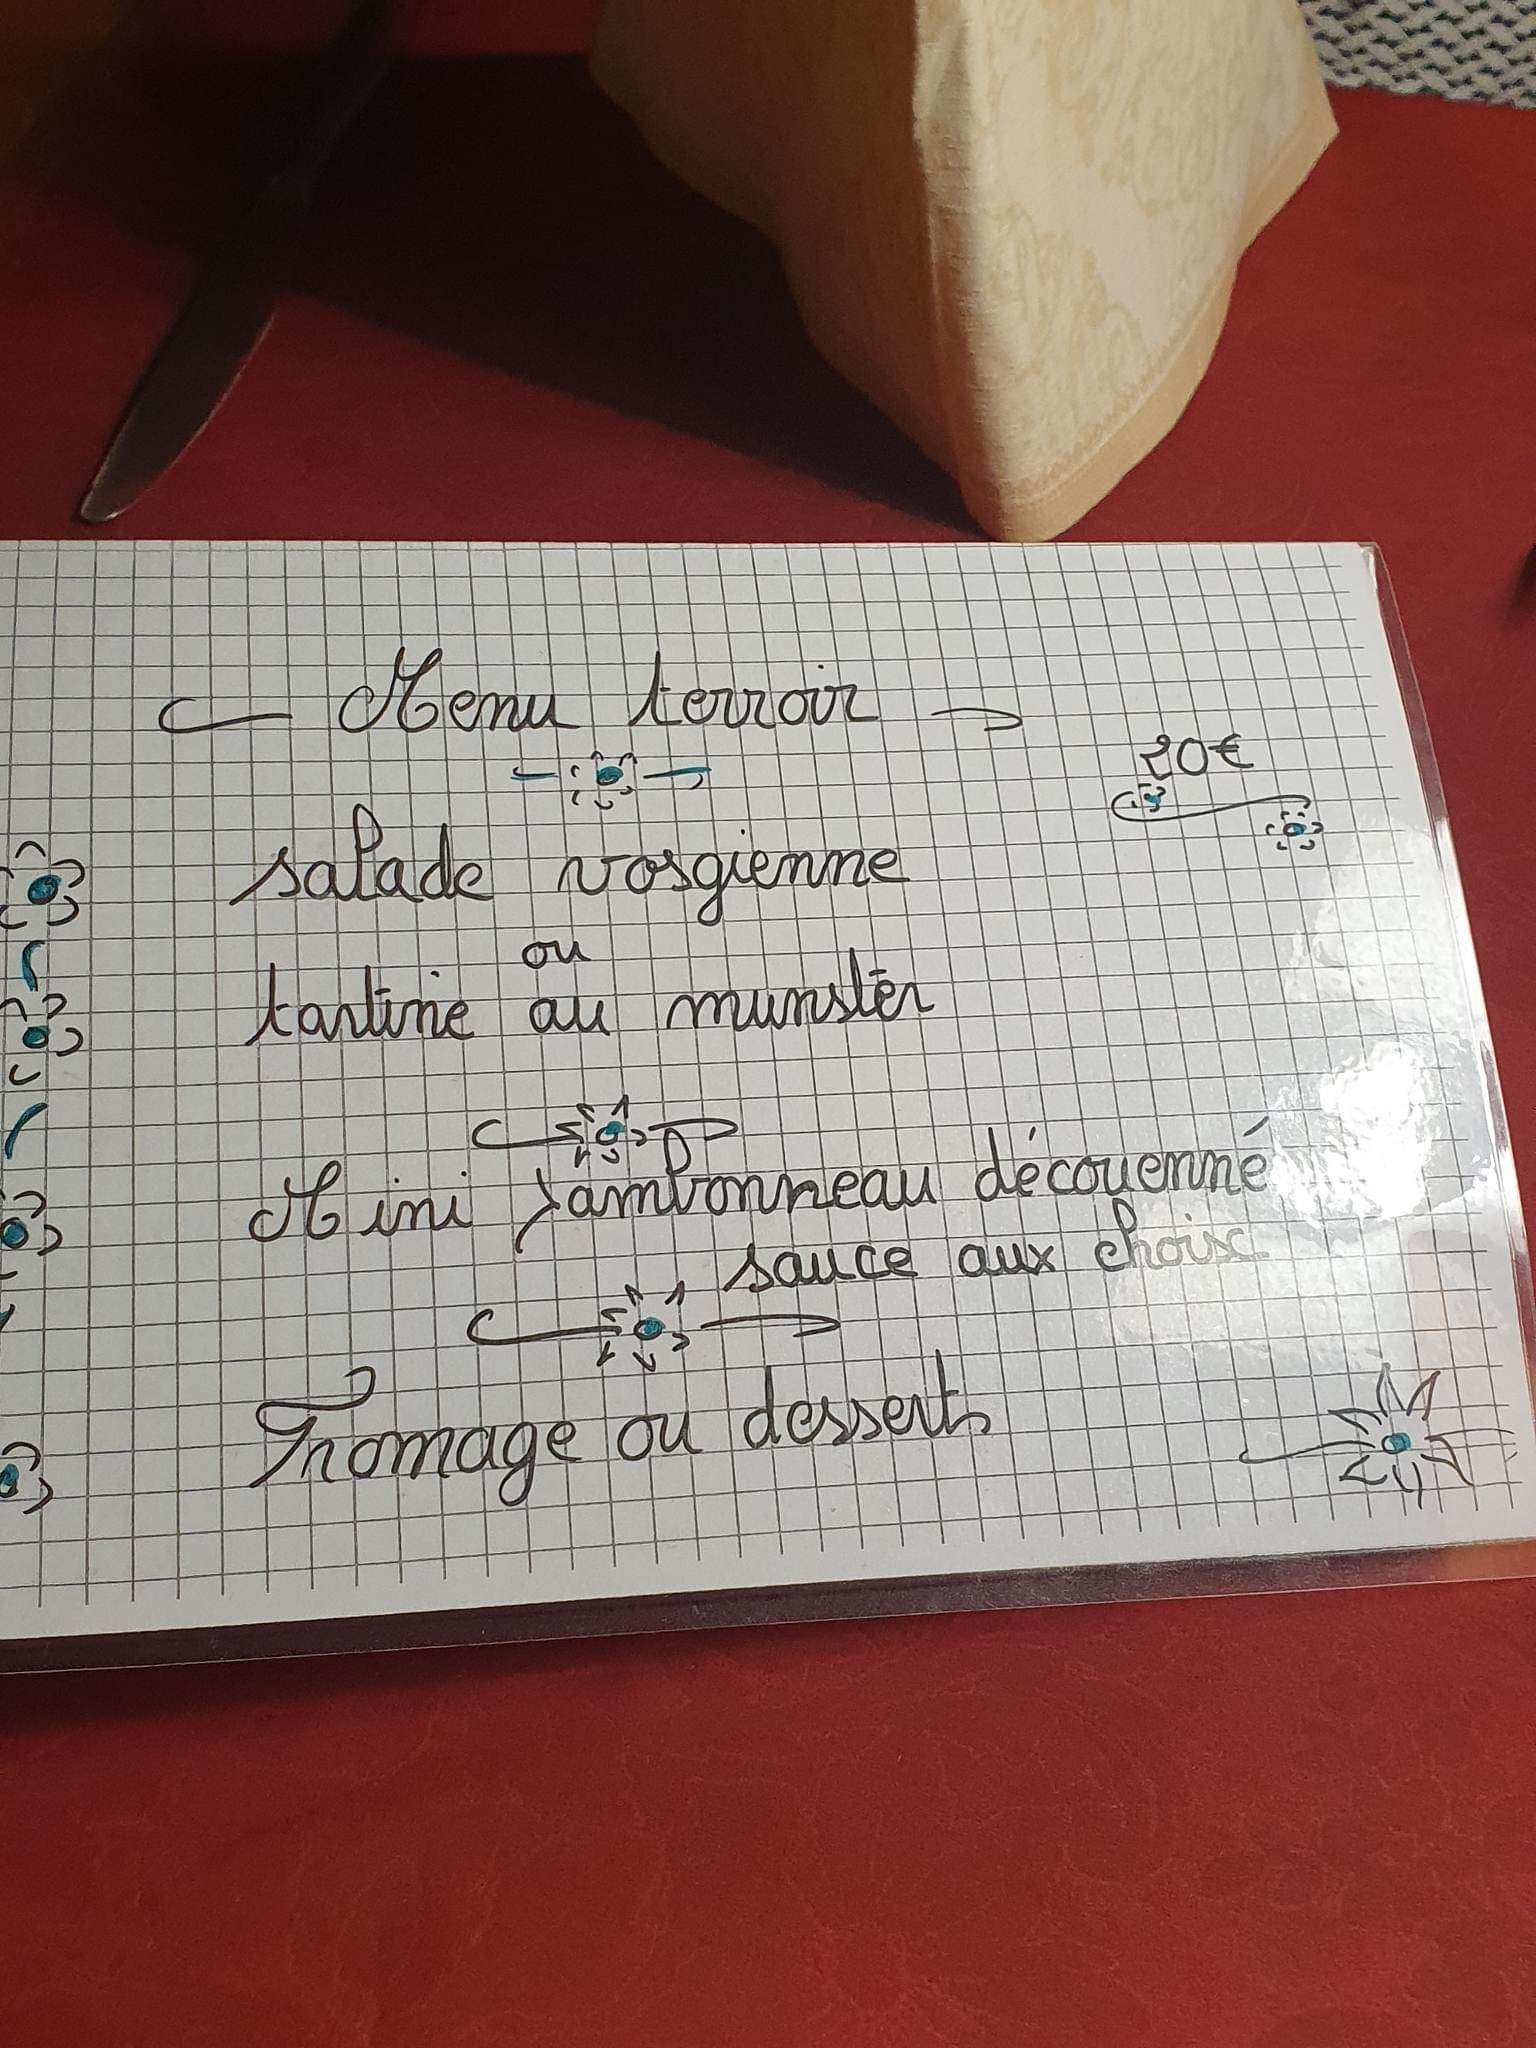 Menu terroir
20€
salade vosgienne
ou
tartine au munster
Mini jambonneau découenné
sauce aux choix
Fromage ou desserts